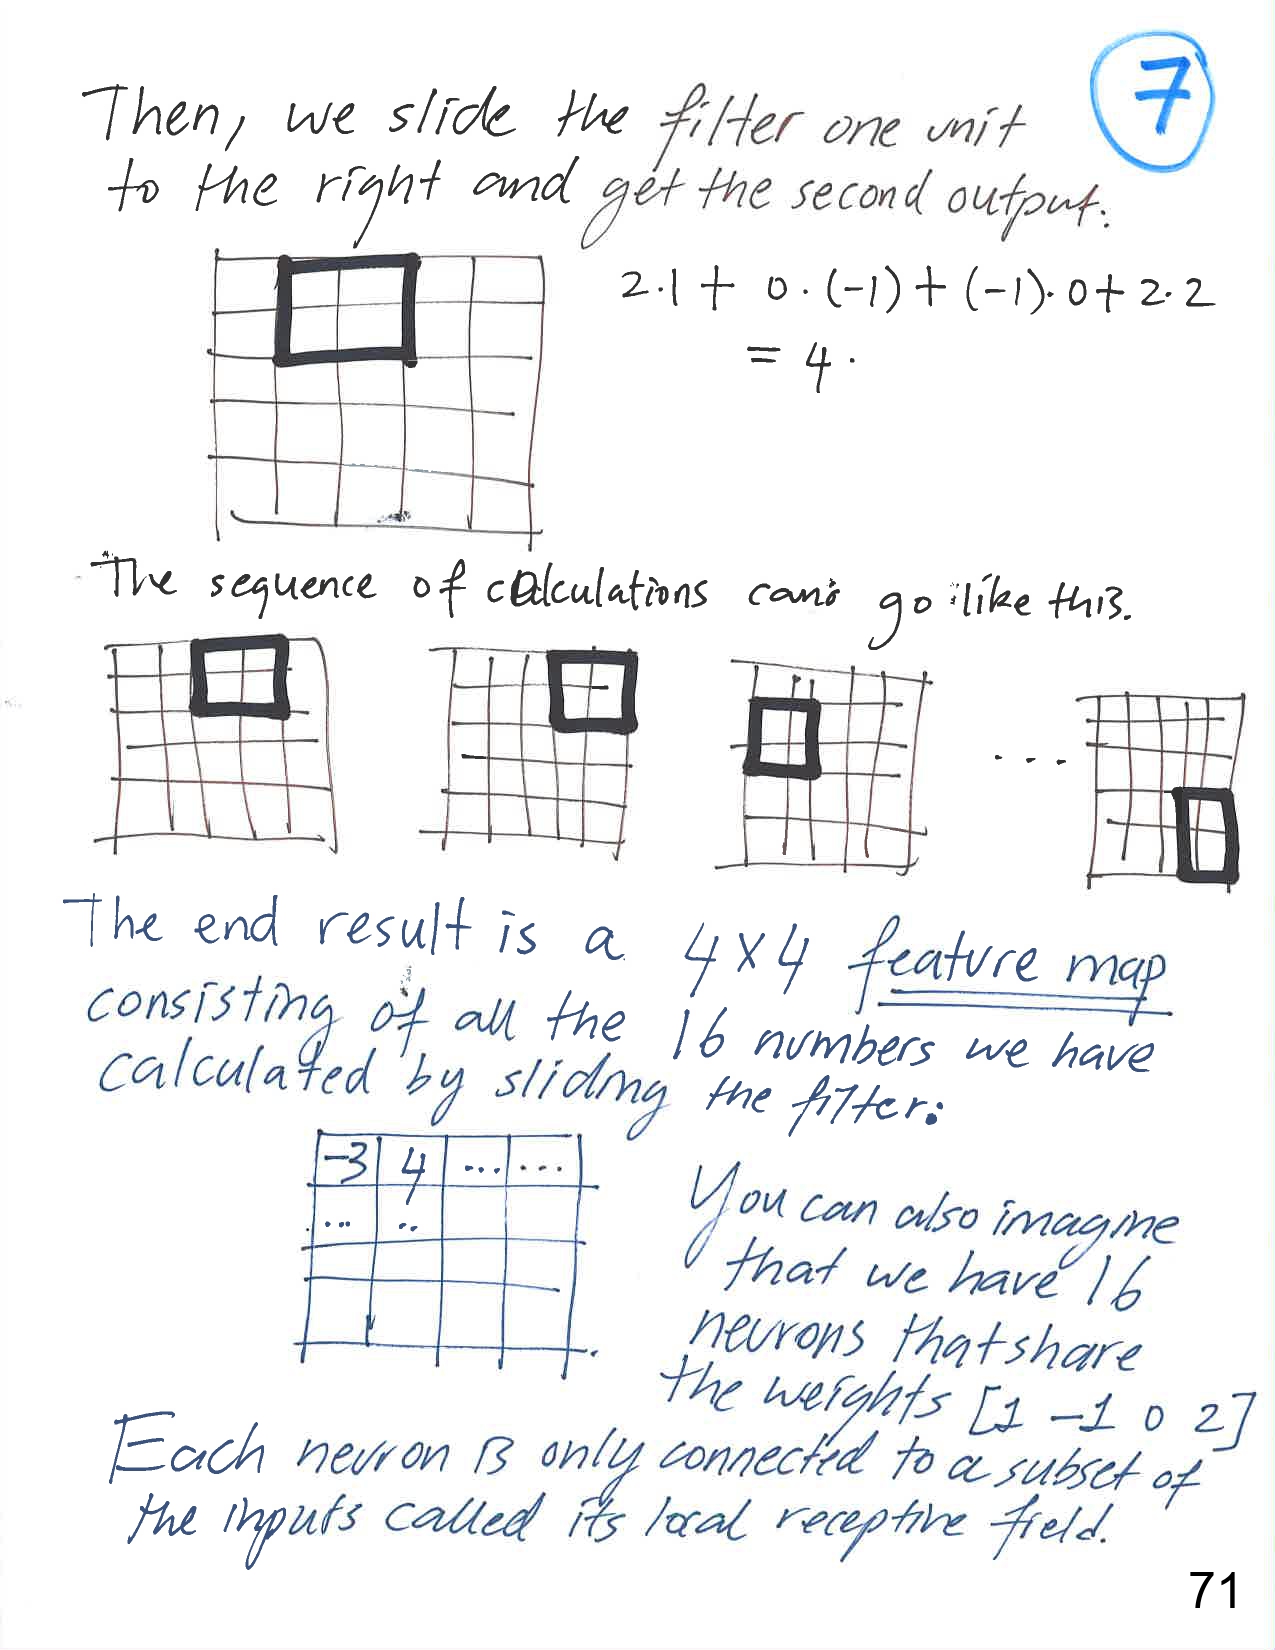 7
Then, we slide the filter one unit
to the right and get the second output.
2·1 + 0·(-1) + (-1)·0 + 2·2
= 4.
The sequence of calculations can go like this.
...
The end result is a 4×4 feature map
consisting of all the 16 numbers we have
calculated by sliding the filter:
-3 4 ... ...
... ..
You can also imagine
that we have 16
neurons that share
the weights [1 -1 0 2]
Each neuron is only connected to a subset of
the inputs called its local receptive field.
71